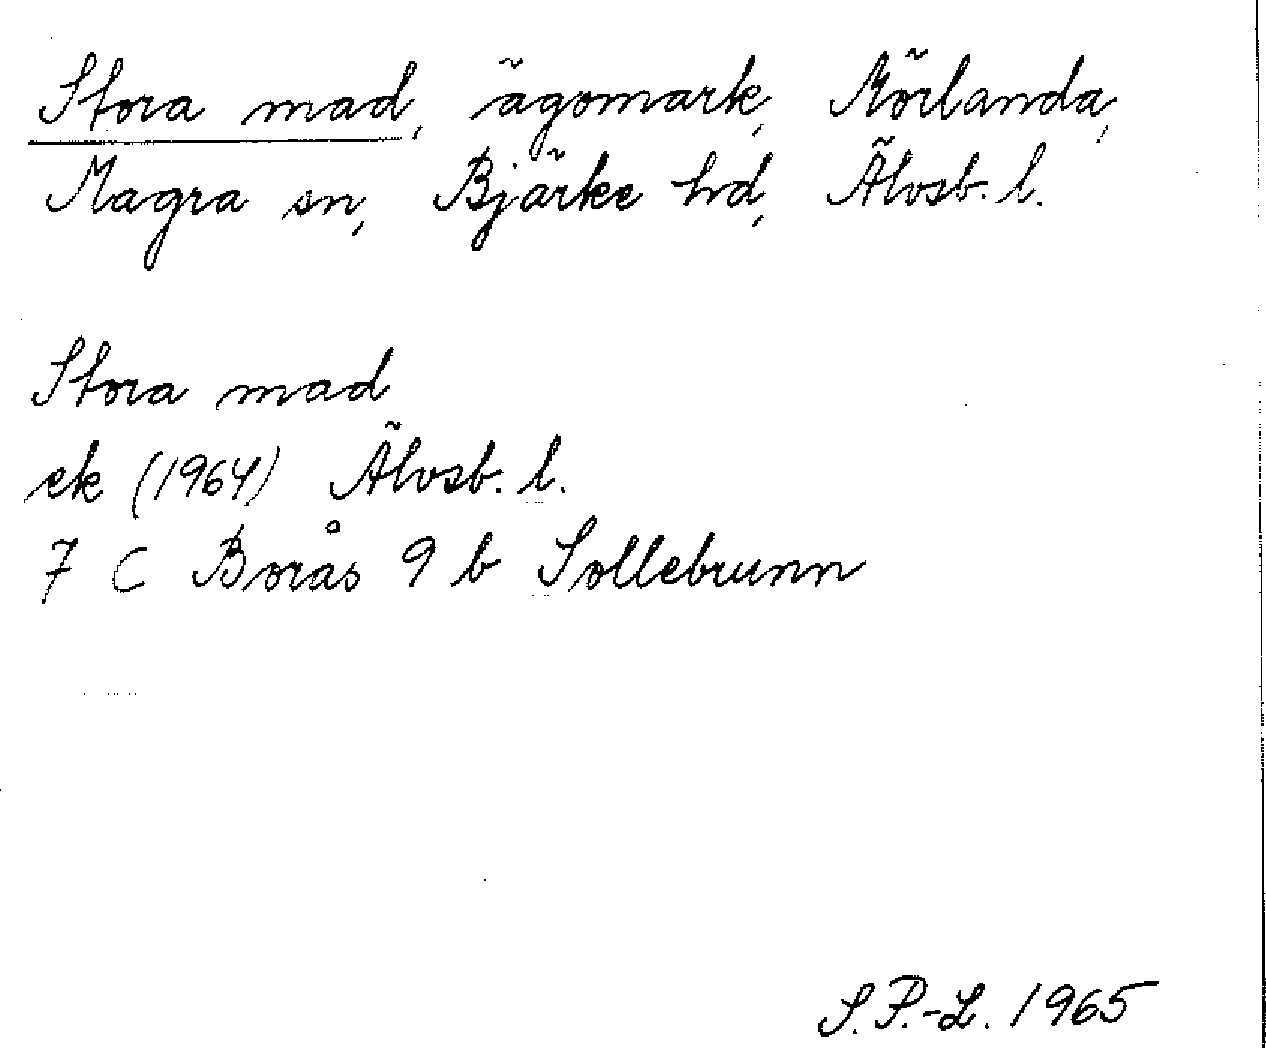 Stora mad, ägomark, Mörlanda,
Magra sn, Bjärke hd, Älvsb. l.
Stora mad
ek (1964) Älvsb. l.
7 C Borås 9 b Sollebrunn
S. P.-L. 1965